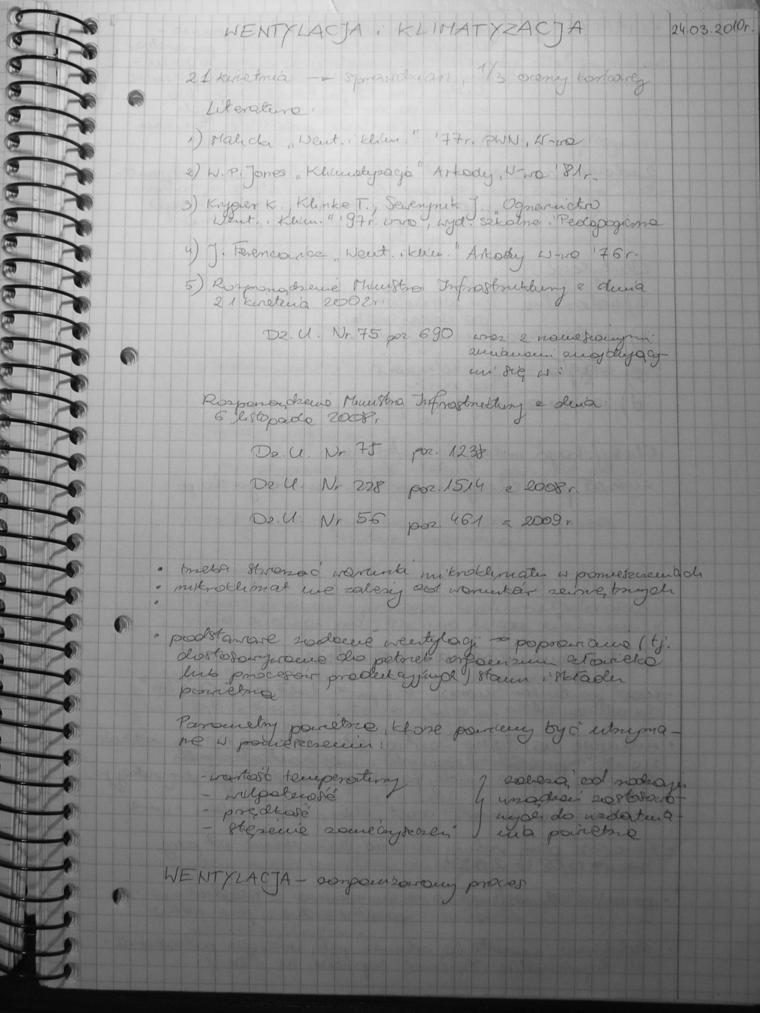 WENTYLACJA i KLIMATYZACJA
24.03.2010r.
21 kwietnia → sprawdzian, 1/3 oceny końcowej
Literatura:
1) Malicka "Went. i klim." '77r. PWN, W-wa
2) W.P. Jones "Klimatyzacja" Arkady, W-wa '81r.
3) Krygier K., Klinke T., Sewerynik J. "Ogrzewnictwo
Went. i Klim." '97r. W-wa, wyd. Szkolne i Pedagogiczne
4) J. Ferencowicz "Went. i klim." Arkady W-wa '76r.
5) Rozporządzenie Ministra Infrastruktury z dnia
21 kwietnia 2002r.
Dz. U. Nr. 75 poz 690 wraz z naniesionymi
zmianami znajdujący-
mi się w:
Rozporządzenie Ministra Infrastruktury z dnia
6 listopada 2008r.
Dz. U. Nr 75 poz. 1238
Dz. U. Nr 228 poz. 1514 z 2008r.
Dz. U. Nr 56 poz 461 z 2009r.
• trzeba stwarzać warunki mikroklimatu w pomieszczeniach
• mikroklimat nie zależy od warunków zewnętrznych
•
• podstawowe zadanie wentylacji → poprawianie (tj.
dostosowywanie do potrzeb organizmu człowieka
lub procesów produkcyjnych) stanu i składu
powietrza
Parametry powietrza, które powinny być utrzyma-
ne w pomieszczeniu:
- wartość temperatury
- wilgotność
- prędkość
- stężenie zanieczyszczeń
} zależą od rodzaju
urządzeń zastosowa-
nych do uzdatnia-
nia powietrza
WENTYLACJA – zorganizowany proces